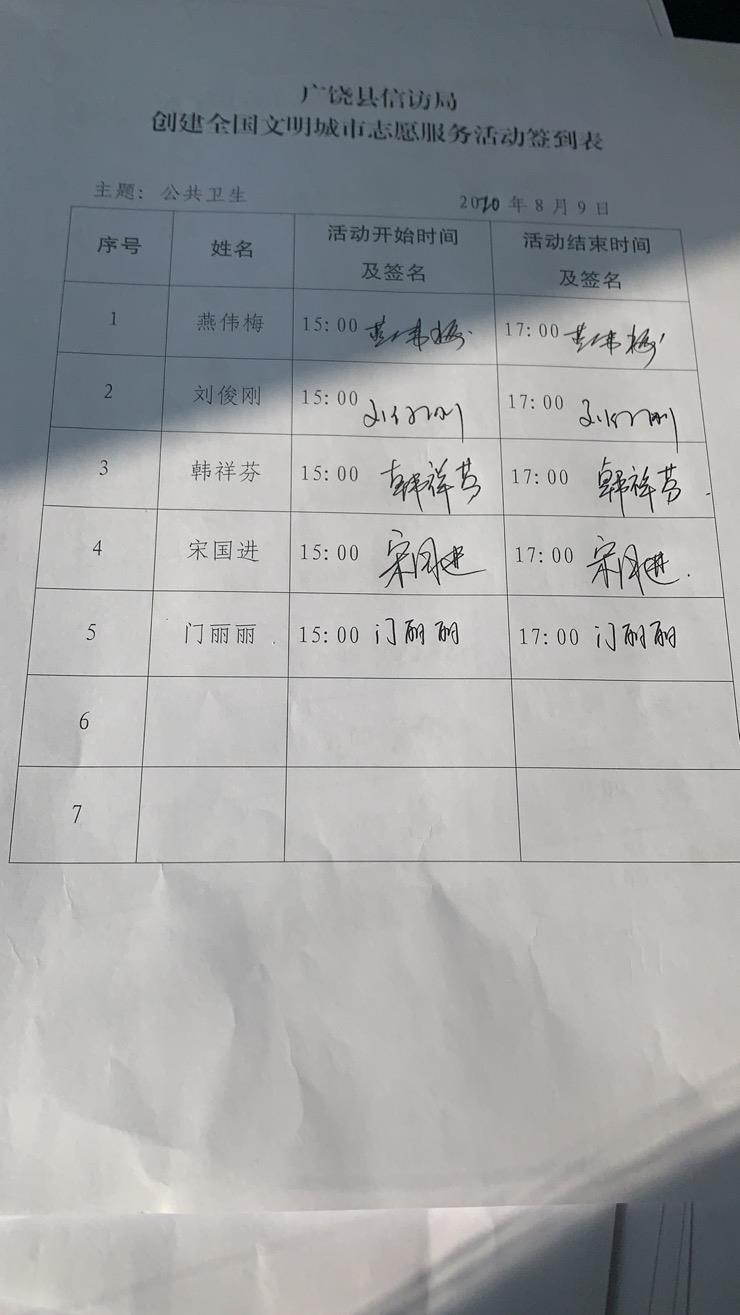 广饶县信访局
创建全国文明城市志愿服务活动签到表
主题：公共卫生 2020 年 8 月 9 日
序号 姓名 活动开始时间及签名 活动结束时间及签名
1 燕伟梅 15：00 燕伟梅 17：00 燕伟梅
2 刘俊刚 15：00 刘俊刚 17：00 刘俊刚
3 韩祥芬 15：00 韩祥芬 17：00 韩祥芬
4 宋国进 15：00 宋国进 17：00 宋国进
5 门丽丽 15：00 门丽丽 17：00 门丽丽
6
7